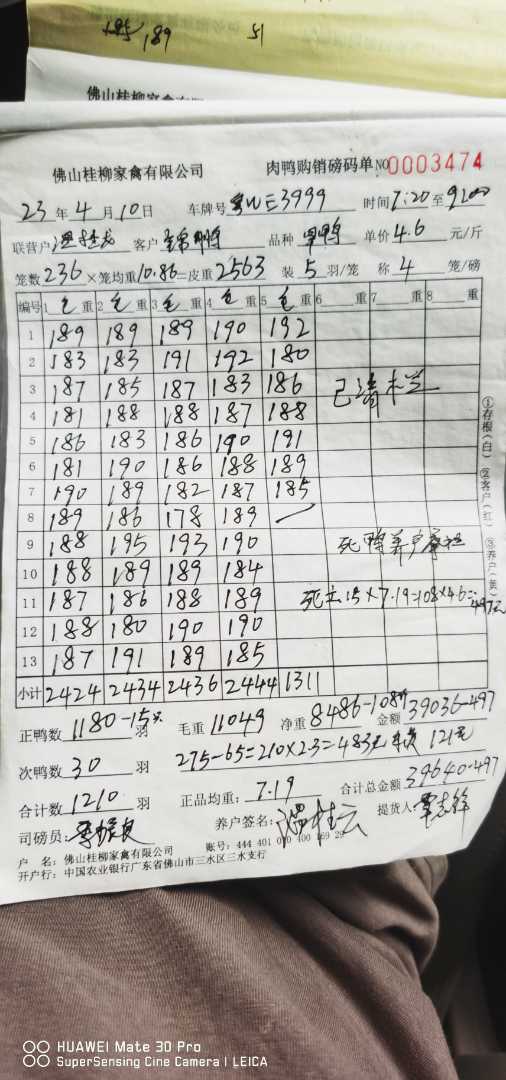 185 189 51
佛山桂柳家禽有限公司
佛山桂柳家禽有限公司 肉鸭购销磅码单 NO 0003474
23年4月10日 车牌号 粤WE3999 时间7:20至9:00
联营户 客户 品种 单价4.6元/斤
笼数236×笼均重10.86=皮重2563 装5羽/笼 称4笼/磅
编号 1毛重 2毛重 3毛重 4毛重 5毛重 6重 7重 8重
1 189 189 189 190 192
2 183 183 191 192 180
3 187 185 187 183 186 已清木兰
4 181 188 188 187 188
5 186 183 186 190 191
6 181 190 186 188 189
7 190 189 182 187 185
8 189 186 178 189
9 188 195 193 190 死鸭养户
10 188 189 189 184
11 187 186 188 189 死亡15×7.19=108×4.6=497元
12 188 180 190 190
13 187 191 189 185
小计 2424 2434 2436 2444 1311
①存根(白) ②客户(红) ③养户(黄)
正鸭数1180-15只羽 毛重11049 净重8486-108斤 金额39036-497
次鸭数30羽 275-65=210×2.3=483元 121元
合计数1210羽 正品均重:7.19 合计总金额39640-497
司磅员: 养户签名: 提货人
户 名:佛山桂柳家禽有限公司 账号:444 401 010 400 169 29
开户行:中国农业银行广东省佛山市三水区三水支行
HUAWEI Mate 30 Pro
SuperSensing Cine Camera | LEICA